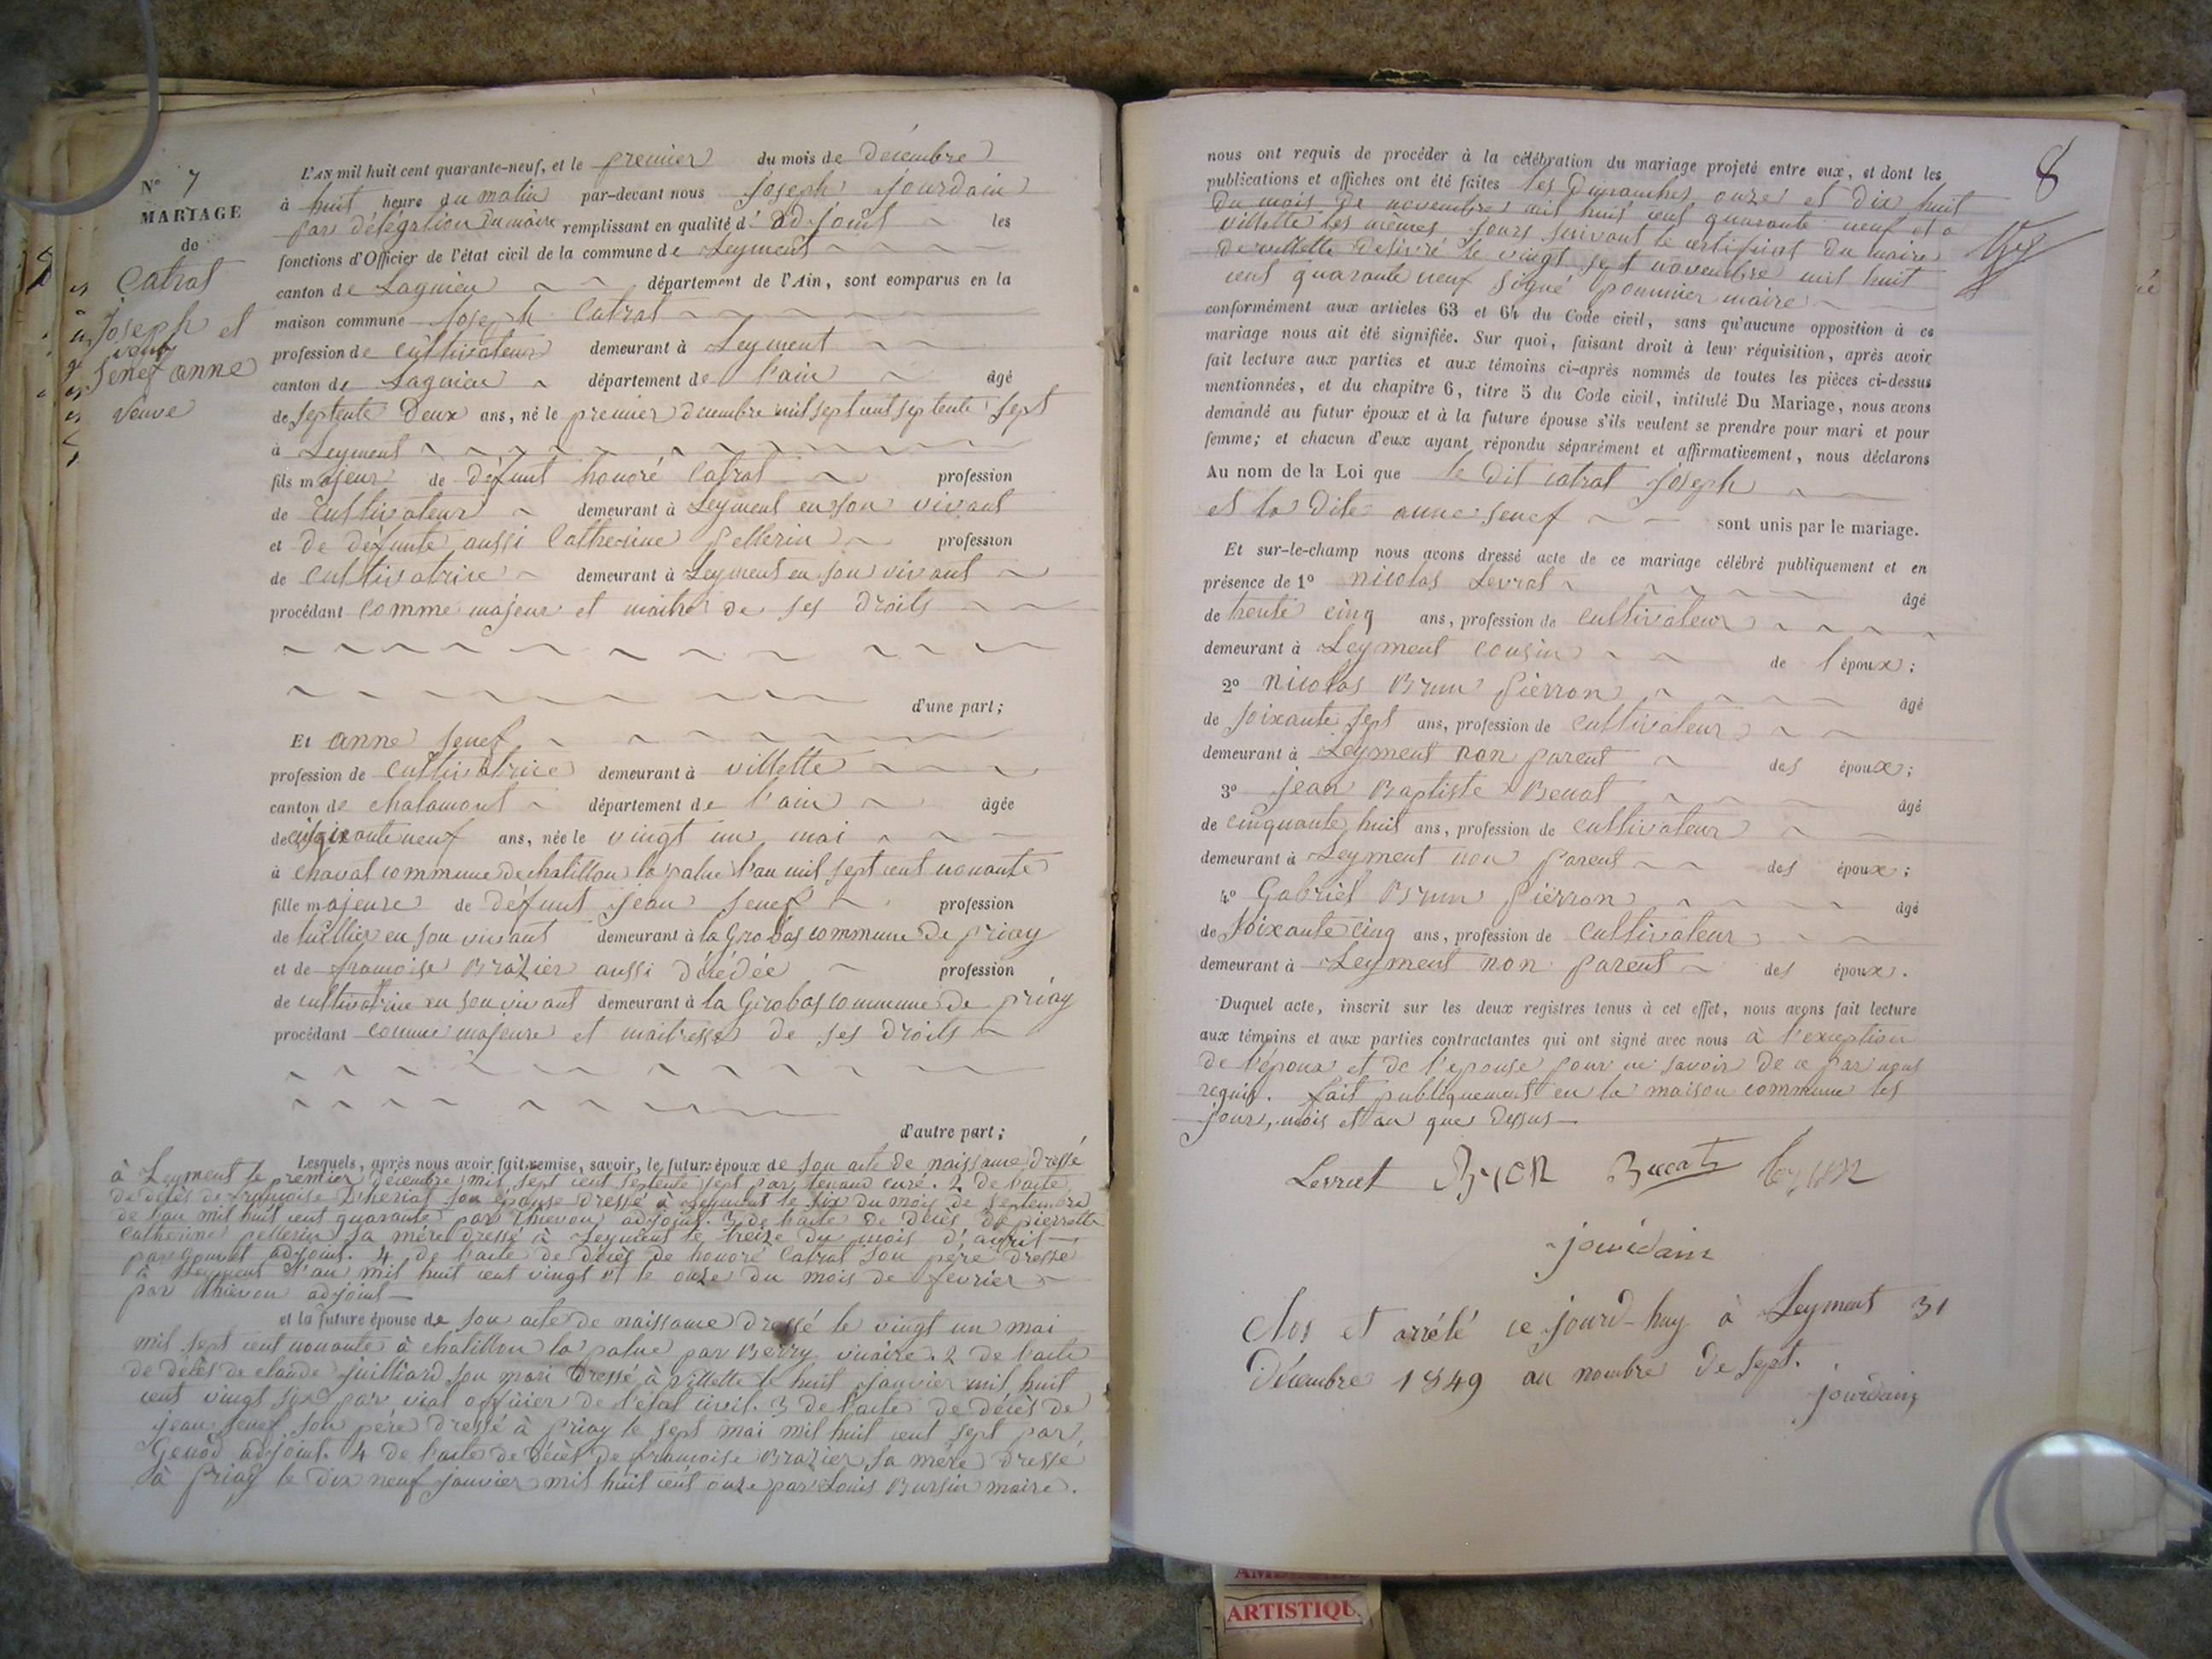 N° 7
MARIAGE
de
Catrat
Joseph et
Senef anne
veuve
L'AN mil huit cent quarante-neuf, et le premier du mois de décembre
à huit heure du matin par-devant nous Joseph Jourdain
par délégation du maire remplissant en qualité d'adjoint les
fonctions d'Officier de l'état civil de la commune de Leyment
canton de Lagnieu département de l'Ain, sont comparus en la
maison commune Joseph Catrat
profession de cultivateur demeurant à Leyment
canton de Lagnieu département de l'ain âgé
de septente deux ans, né le premier decembre mil sept cent septente sept
à Leyment
fils majeur de défunt honoré Catrat profession
de cultivateur demeurant à Leyment en son vivant
et de defunte aussi Catherine Pellerin profession
de cultivatrice demeurant à Leyment en son vivant
procédant comme majeur et maitre de ses droits
d'une part;
Et anne Senef
profession de cultivatrice demeurant à villette
canton de chalamont département de l'ain âgée
de cinquante neuf ans, née le vingt un mai
à chavat commune de chatillon la palue l'an mil sept cent nonante
fille majeure de défunt jean Senef profession
de tuillier en son vivant demeurant à la Girobas commune de priay
et de francoise Brazier aussi décédée profession
de cultivatrice en son vivant demeurant à la Girobas commune de priay
procédant comme majeure et maitresse de ses droits
d'autre part;
Lesquels, après nous avoir fait remise, savoir, le futur époux de son acte de naissance dressé
à Leyment le premier décembre mil sept cent septente sept par tenand curé. 2 de l'acte
de décès de françoise Thevias son épouse dressé à Leyment le six du mois de septembre
de l'an mil huit cent quarante par Thevon adjoint. 3 de l'acte de décès de pierrette
catherine pellerin sa mère dressé à Leyment le treize du mois d'avril
par adjoint. 4 de l'acte de décès de honoré Catrat son père dressé
à Leyment l'an mil huit cent vingt et le onze du mois de fevrier
par Thevon adjoint
et la future épouse de son acte de naissance dressé le vingt un mai
mil sept cent nonante à chatillon la palue par Berry vicaire. 2 de l'acte
de décès de claude Juilliard son mari dressé à villette le huit janvier mil huit
cent vingt six par vial officier de l'état civil. 3 de l'acte de décès de
jean Senef son père dressé à priay le sept mai mil huit cent sept par
Genod adjoint. 4 de l'acte de décès de francoise Brazier sa mère dressé
à priay le dix neuf janvier mil huit cent onze par Louis Bursin maire.
8
nous ont requis de procéder à la célébration du mariage projeté entre eux, et dont les
publications et affiches ont été faites les Dimanches onze et dix huit
du mois de novembre mil huit cent quarante neuf et a
villette les mêmes jours suivant le certificat du maire
de villette delivré le vingt sept novembre mil huit
cent quarante neuf signé pommier maire
conformément aux articles 63 et 64 du Code civil, sans qu'aucune opposition à ce
mariage nous ait été signifiée. Sur quoi, faisant droit à leur réquisition, après avoir
fait lecture aux parties et aux témoins ci-après nommés de toutes les pièces ci-dessus
mentionnées, et du chapitre 6, titre 5 du Code civil, intitulé Du Mariage, nous avons
demandé au futur époux et à la future épouse s'ils veulent se prendre pour mari et pour
femme; et chacun d'eux ayant répondu séparément et affirmativement, nous déclarons
Au nom de la Loi que le dit catrat joseph
et la dite anne senef sont unis par le mariage.
Et sur-le-champ nous avons dressé acte de ce mariage célébré publiquement et en
présence de 1° nicolas Levrat âgé
de trente cinq ans, profession de cultivateur
demeurant à Leyment cousin de l'époux;
2° nicolas Brun Pierron âgé
de soixante sept ans, profession de cultivateur
demeurant à Leyment non parent des époux;
3° jean Baptiste Benat âgé
de cinquante huit ans, profession de cultivateur
demeurant à Leyment non parent des époux;
4° Gabriel Brun Pierron âgé
de soixante cinq ans, profession de cultivateur
demeurant à Leyment non parent des époux.
Duquel acte, inscrit sur les deux registres tenus à cet effet, nous avons fait lecture
aux témoins et aux parties contractantes qui ont signé avec nous à l'exception
de l'époux et de l'epouse pour ne savoir de ce par nous
requis. fait publiquement en la maison commune les
jour, mois et an que dessus
Levrat
jourdain
Clos et arrêté ce jourd-huy à Leyment 31
Décembre 1849 au nombre de sept.
jourdain
ARTISTIQU